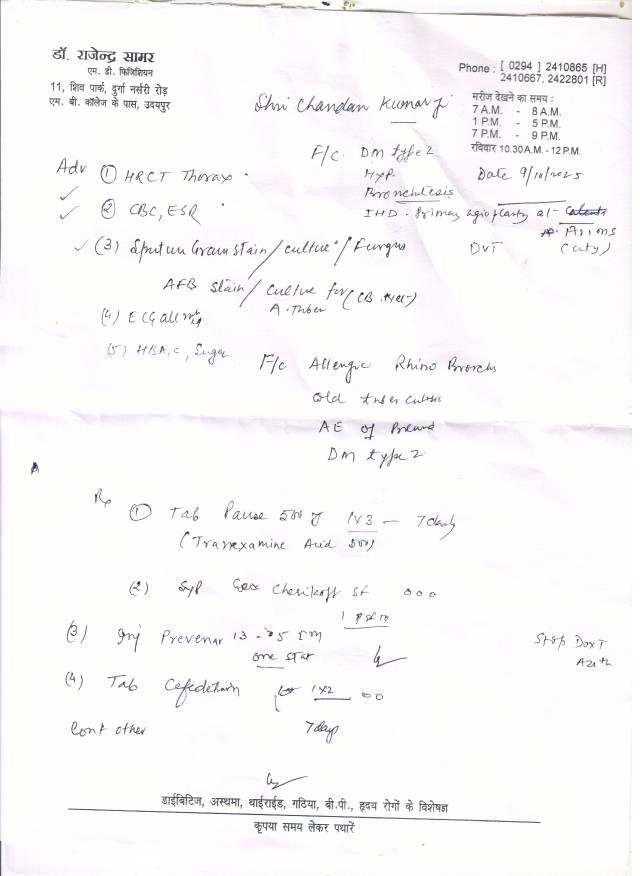 डॉ. राजेन्द्र सामर
एम. डी. फिजिशियन
11, शिव पार्क, दुर्गा नर्सरी रोड़
एम. बी. कॉलेज के पास, उदयपुर
Phone : [ 0294 ] 2410865 [H]
2410667, 2422801 [R]
मरीज देखने का समय :
7 A.M. - 8 A.M.
1 P.M. - 5 P.M.
7 P.M. - 9 P.M.
रविवार 10.30 A.M. - 12 P.M.
Shri Chandan Kumar ji
F/c. DM type 2
Date 9/10/2025
Adv (1) HRCT Thorax
HYP
(2) CBC, ESR
IHD - Primary
(3) Sputum Gram Stain / culture / Fungus
DVT
AFB Stain / Culture for
(4) ECG all
(5) HBA1C, Sugar
F/c. Allergic Rhino
Old
AE of
DM type 2
Rx (1) Tab Pause 500 1x3 - 7 days
(Tranexamine Acid 500)
(2) Syp
(3) Inj Prevenar 13 - IM
one stat
Stop
(4) Tab 1x2
Cont other 7 days
डाईबिटिज, अस्थमा, थाईराईड, गठिया, बी.पी., हृदय रोगों के विशेषज्ञ
कृपया समय लेकर पधारें